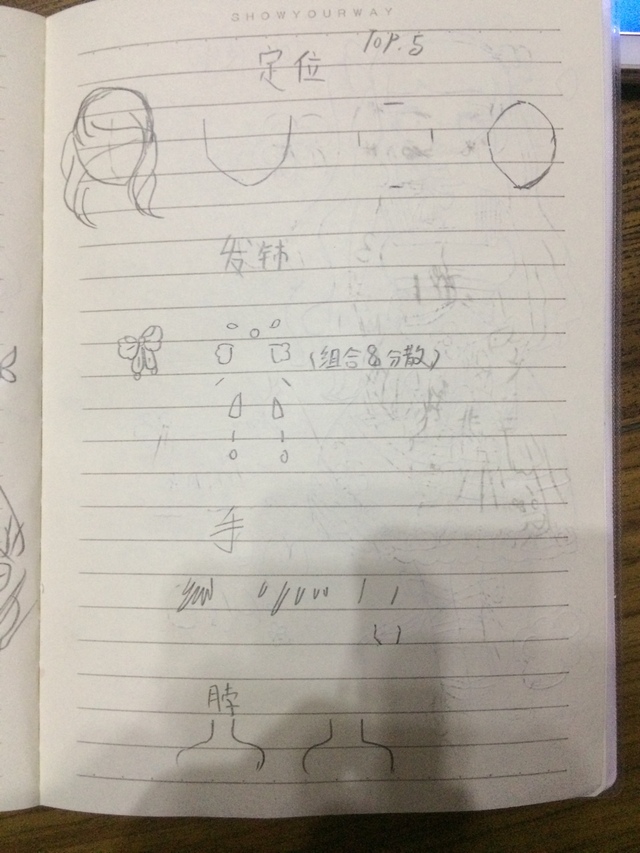 SHOWYOURWAY
TOP.5
定位
发饰
(组合&分散)
手
脖